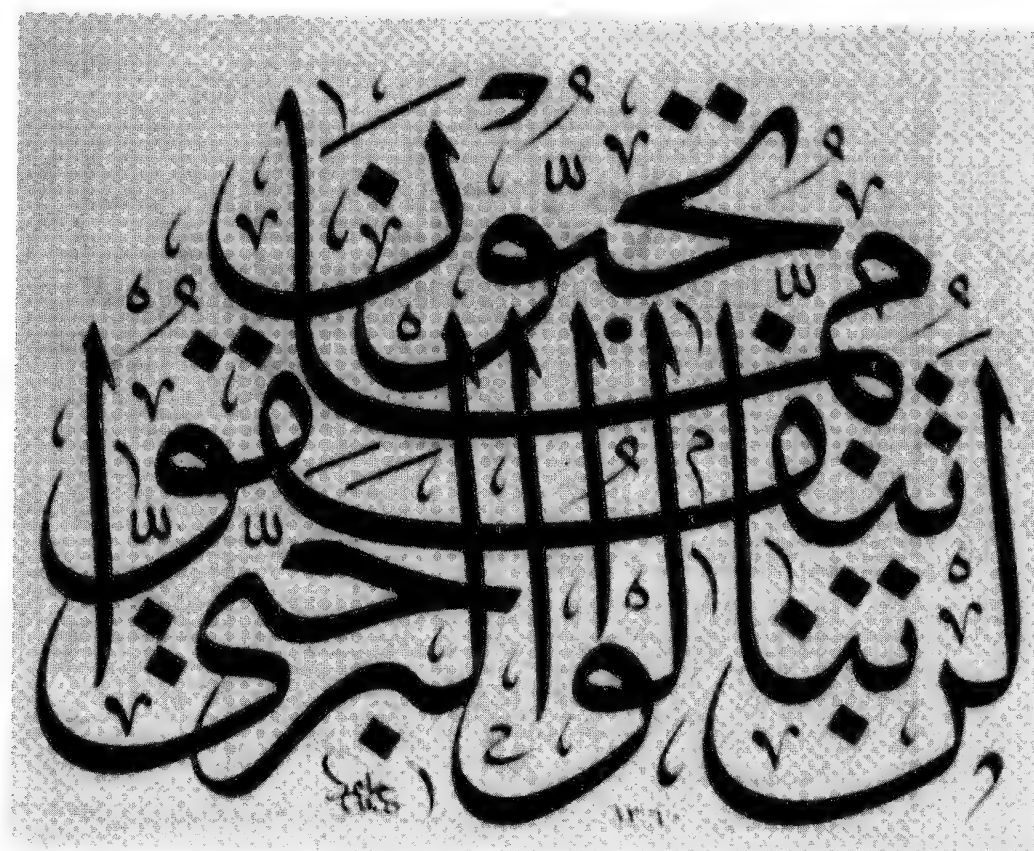 لَنْ تَنَالُوا الْبِرَّ حَتَّى
تُنْفِقُوا
مِمَّا تُحِبُّونَ
حامد